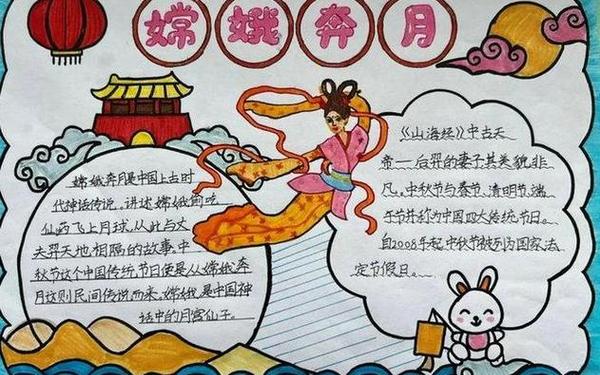 嫦娥奔月
嫦娥奔月是中国上古时
代神话传说，讲述嫦娥偷吃
仙药飞上月球，从此与丈
夫羿天地相隔的故事。中
秋节这个中国传统节日便是从嫦娥奔
月这则民间传说而来，嫦娥是中国神
话中的月宫仙子。
《山海经》中古天
帝—后羿的妻子其美貌非
凡。中秋节与春节、清明节、端
午节并称为中国四大传统节日。
自2008年起中秋节被列为国家法
定节假日。